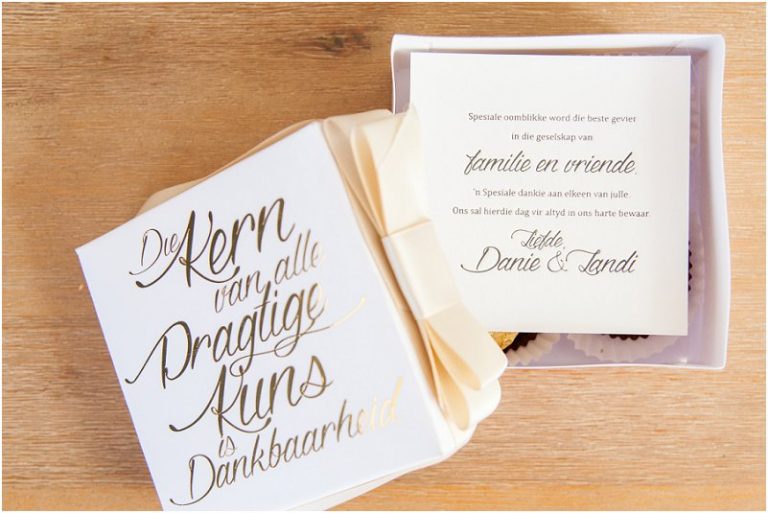 Die
Kern
van alle
Dragtige
Kuns
is
Dankbaarheid
Spesiale oomblikke word die beste gevier
in die geselskap van
familie en vriende.
'n Spesiale dankie aan elkeen van julle.
Ons sal hierdie dag vir altyd in ons harte bewaar.
Liefde,
Danie & Landi